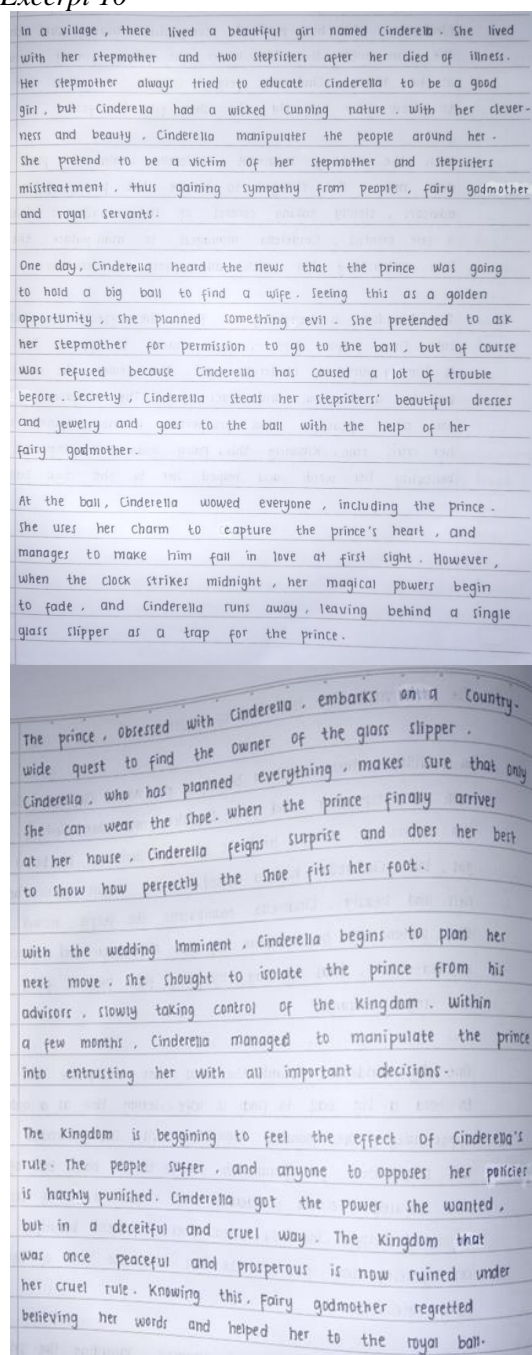 Excerpt 10
In a village, there lived a beautiful girl named Cinderella. She lived
with her stepmother and two stepsisters after her died of illness.
Her stepmother always tried to educate Cinderella to be a good
girl, but Cinderella had a wicked cunning nature. With her clever-
ness and beauty, Cinderella manipulates the people around her.
She pretend to be a victim of her stepmother and stepsisters
misstreatment, thus gaining sympathy from people, fairy godmother
and royal servants.
One day, Cinderella heard the news that the prince was going
to hold a big ball to find a wife. Seeing this as a golden
opportunity, she planned something evil. She pretended to ask
her stepmother for permission to go to the ball, but of course
was refused because Cinderella has caused a lot of trouble
before. Secretly, Cinderella steals her stepsisters' beautiful dresses
and jewelry and goes to the ball with the help of her
fairy godmother.
At the ball, Cinderella wowed everyone, including the prince.
She uses her charm to capture the prince's heart, and
manages to make him fall in love at first sight. However,
when the clock strikes midnight, her magical powers begin
to fade, and Cinderella runs away, leaving behind a single
glass slipper as a trap for the prince.
The prince, obsessed with Cinderella, embarks on a country-
wide quest to find the owner of the glass slipper.
Cinderella, who has planned everything, makes sure that only
she can wear the shoe. When the prince finally arrives
at her house, Cinderella feigns surprise and does her best
to show how perfectly the shoe fits her foot.
With the wedding imminent, Cinderella begins to plan her
next move. She shought to isolate the prince from his
advisors, slowly taking control of the kingdom. Within
a few months, Cinderella managed to manipulate the prince
into entrusting her with all important decisions.
The Kingdom is beggining to feel the effect of Cinderella's
rule. The people suffer, and anyone to opposes her policies
is harshly punished. Cinderella got the power she wanted,
but in a deceitful and cruel way. The Kingdom that
was once peaceful and prosperous is now ruined under
her cruel rule. Knowing this, Fairy godmother regretted
believing her words and helped her to the royal ball.